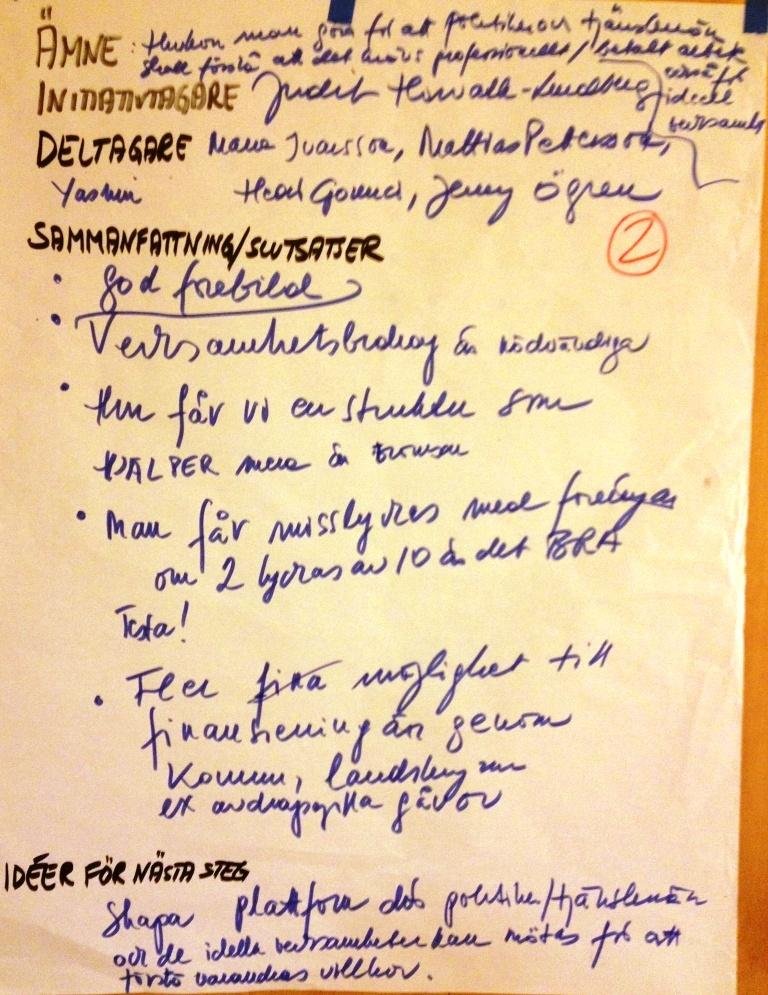 ÄMNE: Hurkan man göra för att politiker och tjänstemän
skall förstå att det krävs professionellt/betalt arbete
också för
ideell
verksamhet
INITIATIVTAGARE Judith Horvath-Lindberg
DELTAGARE Maria Ivarsson, Mattias Pettersson,
Yasmin Jenny Ögren
SAMMANFATTNING/SLUTSATSER
2
• God förebild
• Verksamhetsbidrag är nödvändiga
• Hur får vi en struktur som
HJÄLPER mera än bromsar
• Man får misslyckas med föreningar
om 2 lyckas av 10 är det BRA
Testa!
• Fler fika möjlighet till
finansiering än genom
Kommun, landsting som
ex avdragsgilla gåvor
IDÉER FÖR NÄSTA STEG
Skapa plattform där politiker/tjänstemän
och de idella verksamheter kan mötas för att
förstå varandras villkor.